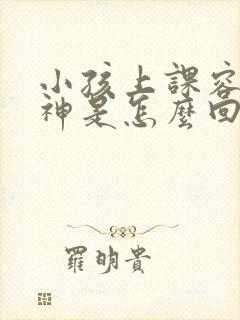 小孩上課容
神是怎麼回
羅明貴